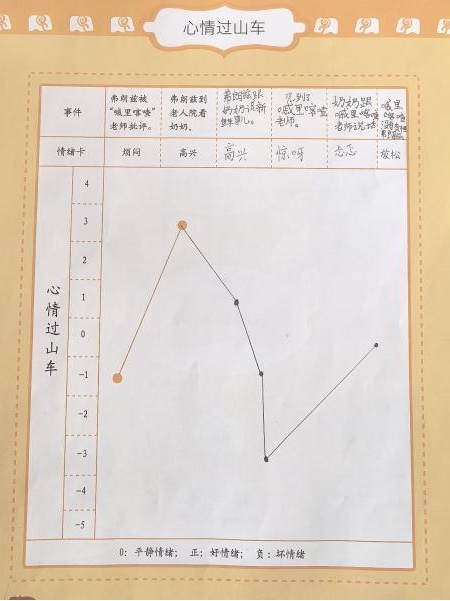 心情过山车
事件
弗朗兹被
“嘁里喀喳”
老师批评。
弗朗兹到
老人院看
奶奶。
弗朗兹跟
奶奶说新
鲜事儿。
见到了
嘁里喀喳
老师。
奶奶跟
嘁里喀喳
老师说话
嘁里
喀喳
情绪卡
烦闷
高兴
高兴
惊呀
忐忑
放松
心情过山车
4
3
2
1
0
-1
-2
-3
-4
-5
0：平静情绪； 正：好情绪； 负：坏情绪